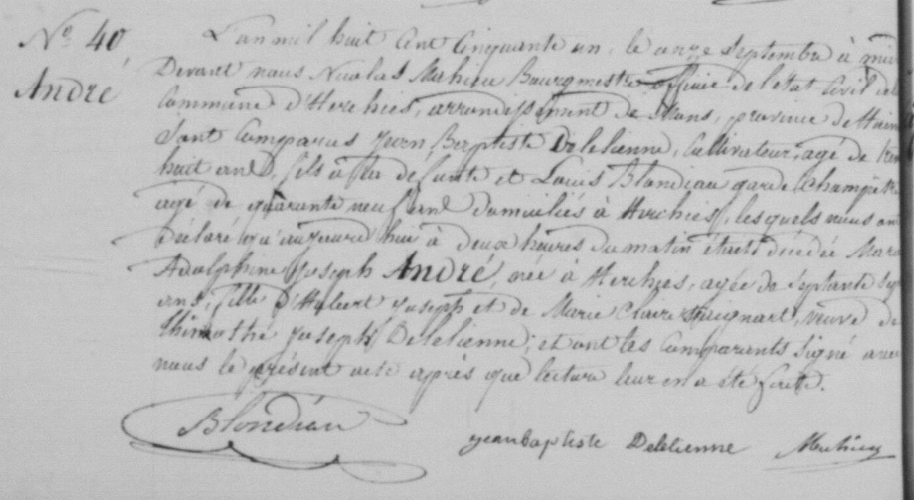 N° 40
André
L'an mil huit cent cinquante un, le onze Septembre à midi
Devant nous Nicolas Mahieu Bourgmestre officier de l'état Civil de la
Commune d'Herchies, arrondissement de Mons, province de Hain
Sont Comparus Jean Baptiste Delelienne, Cultivateur, agé de trente
huit ans, fils à la defunte et Louis Blondiau garde Champêtre
agé de quarante neuf ans domiciliés à Herchies, lesquels nous ont
Déclaré qu'aujourd'hui à deux heures du matin était décédée Marie
Adolphine Joseph André, née à Herchies, agée de septante sept
ans, fille d'Hubert Joseph et de Marie Claire veuve de
Thimothé Joseph Delelienne; et ont les Comparants signé avec
nous le présent acte après que lecture leur en a été faite.
Blondiau
Jean baptiste Delelienne
Mahieu